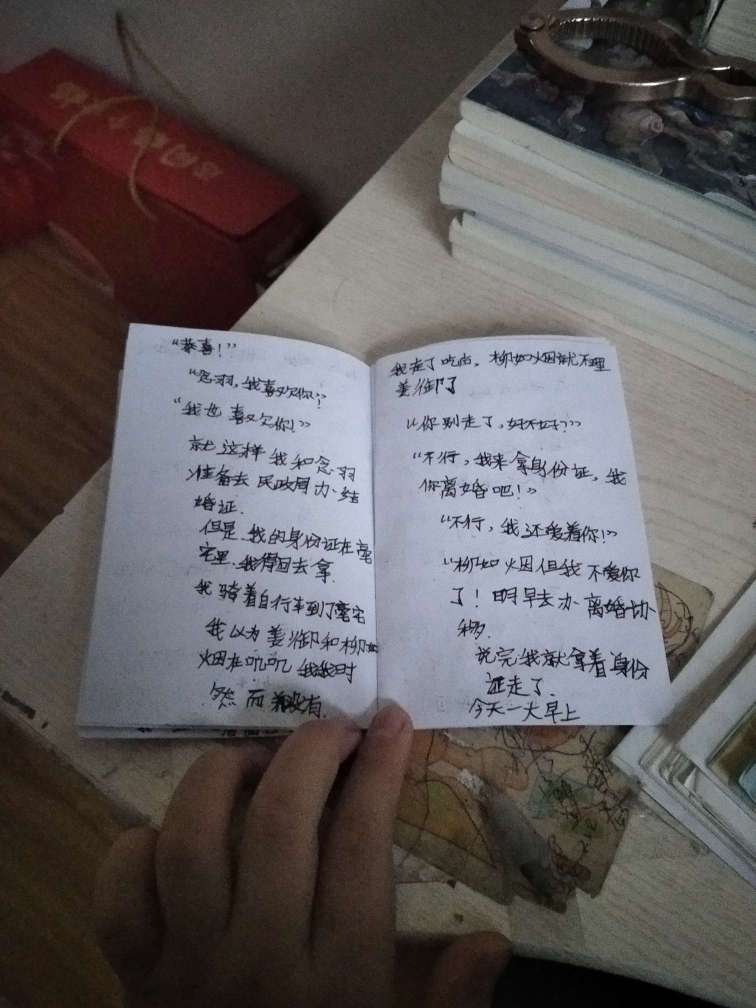 “恭喜！”
“念羽，我喜欢你！”
“我也喜欢你！”
就这样我和念羽
准备去民政局办结
婚证．
但是．我的身份证在
宅里．我得回去拿．
我骑着自行车到了宅
我以为姜御和柳如
烟在叽叽我我时
然而并没有．
我走了吃肉，柳如烟就不理
姜御了
“你别走了，好不好？”
“不行，我来拿身份证，我
你离婚吧！”
“不行，我还爱着你！”
“柳如烟但我不爱你
了！明早去办离婚协
移．
说完我就拿着身份
证走了．
今天一大早上